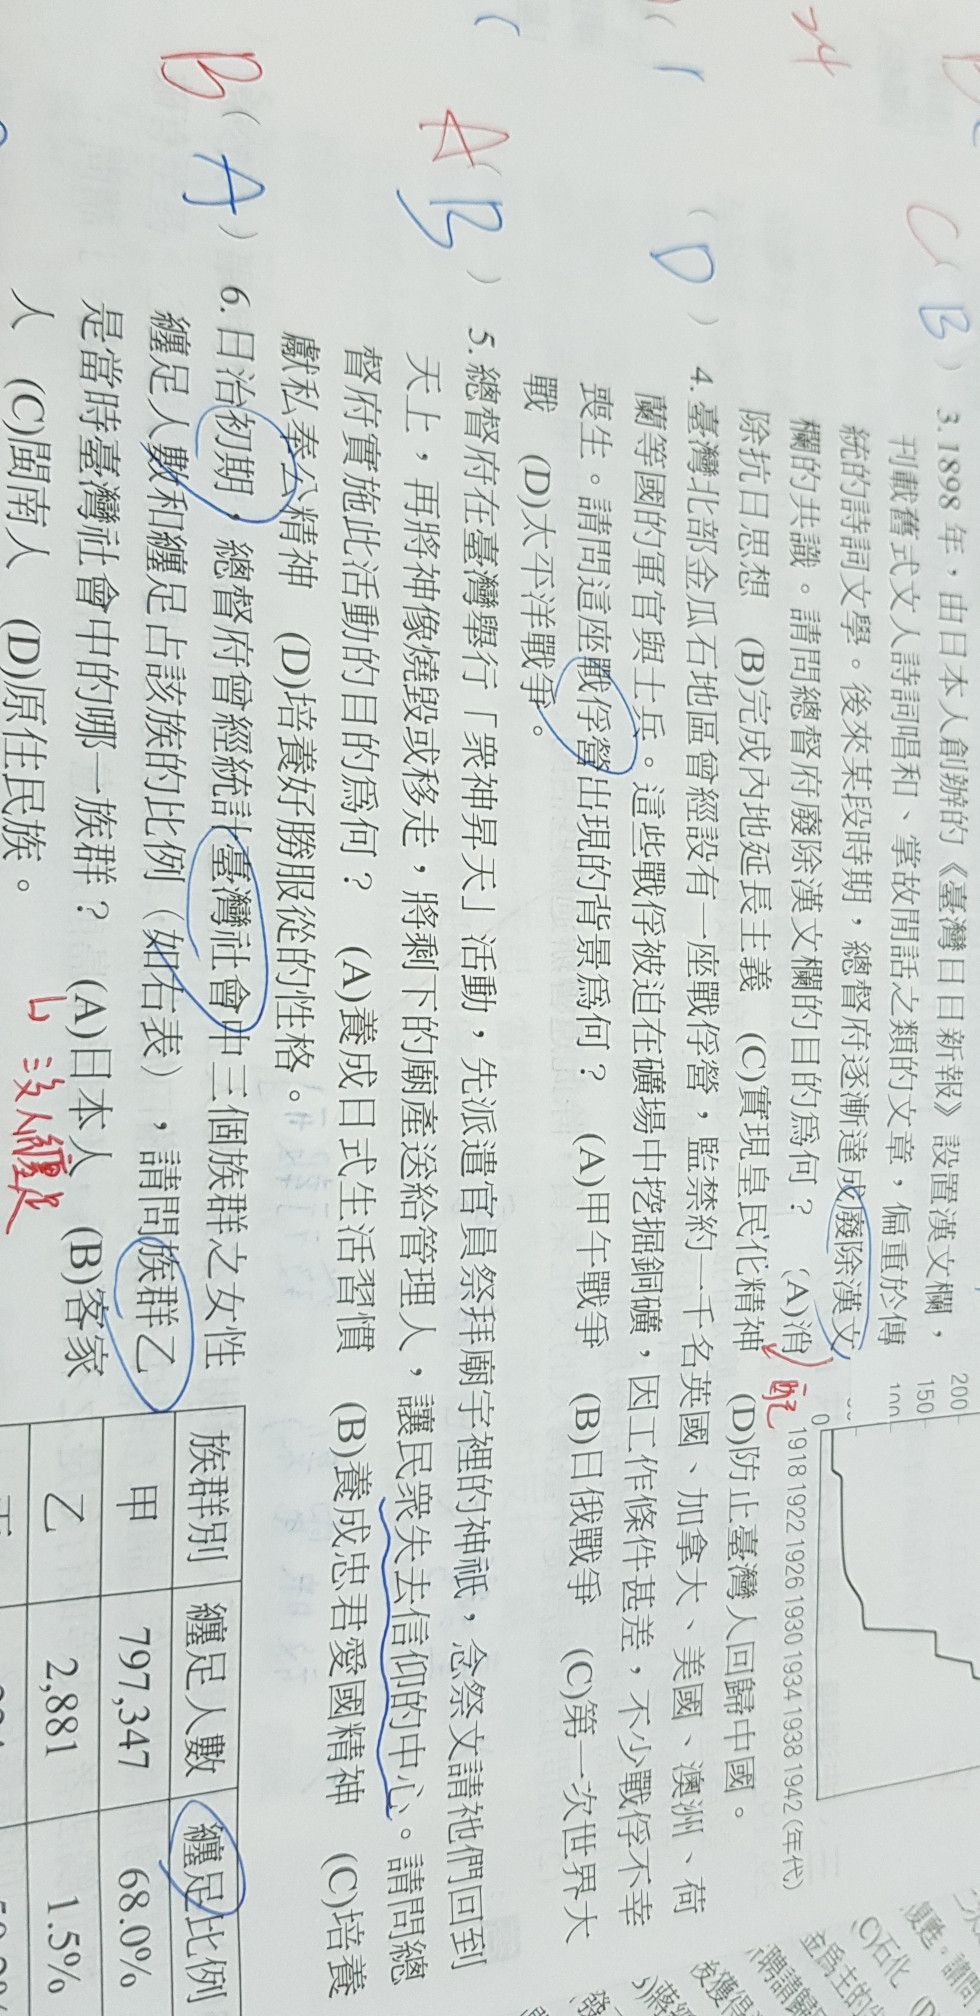 200
150
100
0
1918 1922 1926 1930 1934 1938 1942 (年代)
C ( B ) 3. 1898 年，由日本人創辦的《臺灣日日新報》設置漢文欄，
刊載舊式文人詩詞唱和、掌故閒話之類的文章，偏重於傳
統的詩詞文學。後來某段時期，總督府逐漸達成廢除漢文
欄的共識。請問總督府廢除漢文欄的目的為何？ (A)消
除抗日思想 (B)完成內地延長主義 (C)實現皇民化精神 (D)防止臺灣人回歸中國。
( D ) 4. 臺灣北部金瓜石地區曾經設有一座戰俘營，監禁約一千名英國、加拿大、美國、澳洲、荷
蘭等國的軍官與士兵。這些戰俘被迫在礦場中挖掘銅礦，因工作條件甚差，不少戰俘不幸
喪生。請問這座戰俘營出現的背景為何？ (A)甲午戰爭 (B)日俄戰爭 (C)第一次世界大
戰 (D)太平洋戰爭。
A ( B ) 5. 總督府在臺灣舉行「眾神昇天」活動，先派遣官員祭拜廟宇裡的神祇，念祭文請祂們回到
天上，再將神像燒毀或移走，將剩下的廟產送給管理人，讓民眾失去信仰的中心。請問總
督府實施此活動的目的為何？ (A)養成日式生活習慣 (B)養成忠君愛國精神 (C)培養
獻私奉公精神 (D)培養好勝服從的性格。
B ( A ) 6. 日治初期，總督府曾經統計臺灣社會中三個族群之女性
纏足人數和纏足占該族的比例（如右表），請問族群乙
是當時臺灣社會中的哪一族群？ (A)日本人 (B)客家
人 (C)閩南人 (D)原住民族。
沒人纏足
族群別 纏足人數 纏足比例
甲 797,347 68.0%
乙 2,881 1.5%